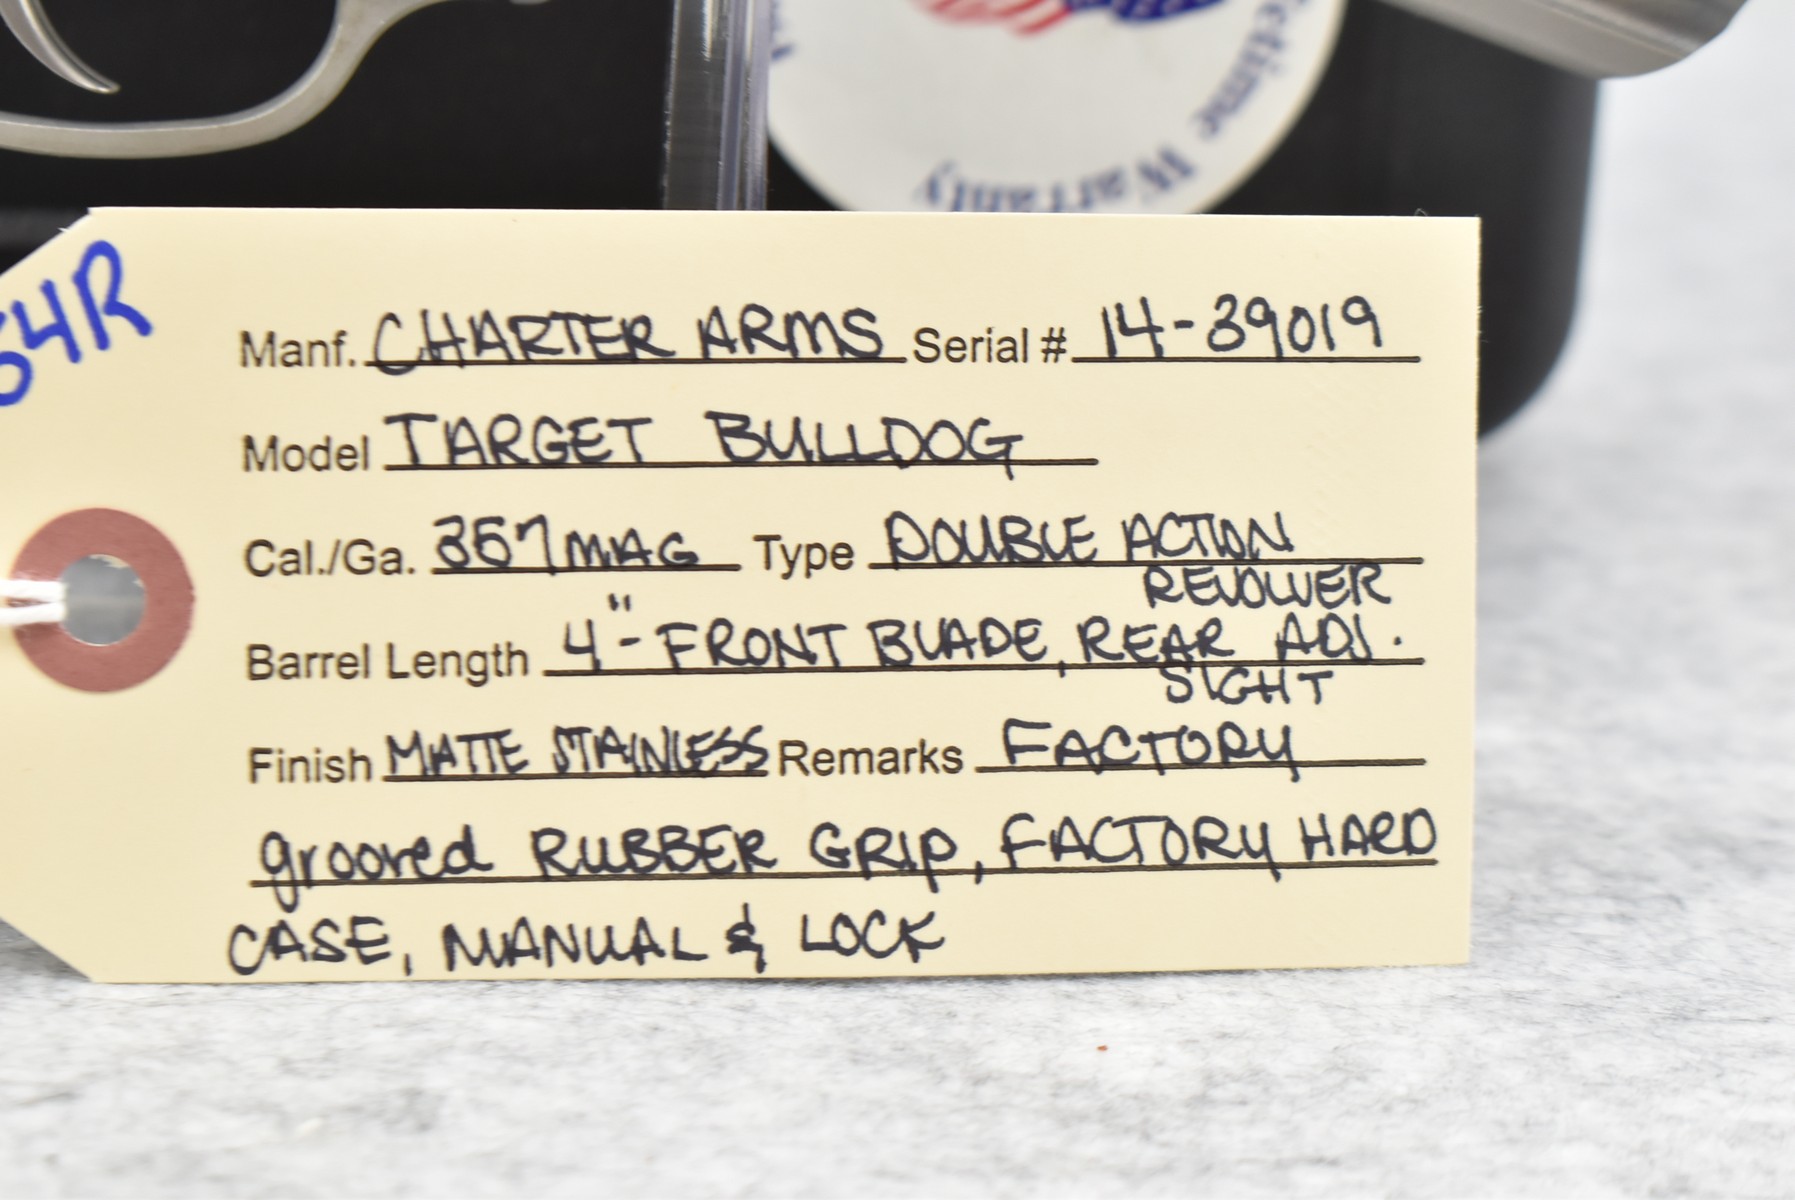 Lifetime Warranty
54R
Manf. CHARTER ARMS Serial # 14-39019
Model TARGET BULLDOG
Cal./Ga. 357 MAG Type DOUBLE ACTION
REVOLVER
Barrel Length 4"- FRONT BLADE, REAR ADJ.
SIGHT
Finish MATTE STAINLESS Remarks FACTORY
grooved RUBBER GRIP, FACTORY HARD
CASE, MANUAL & LOCK